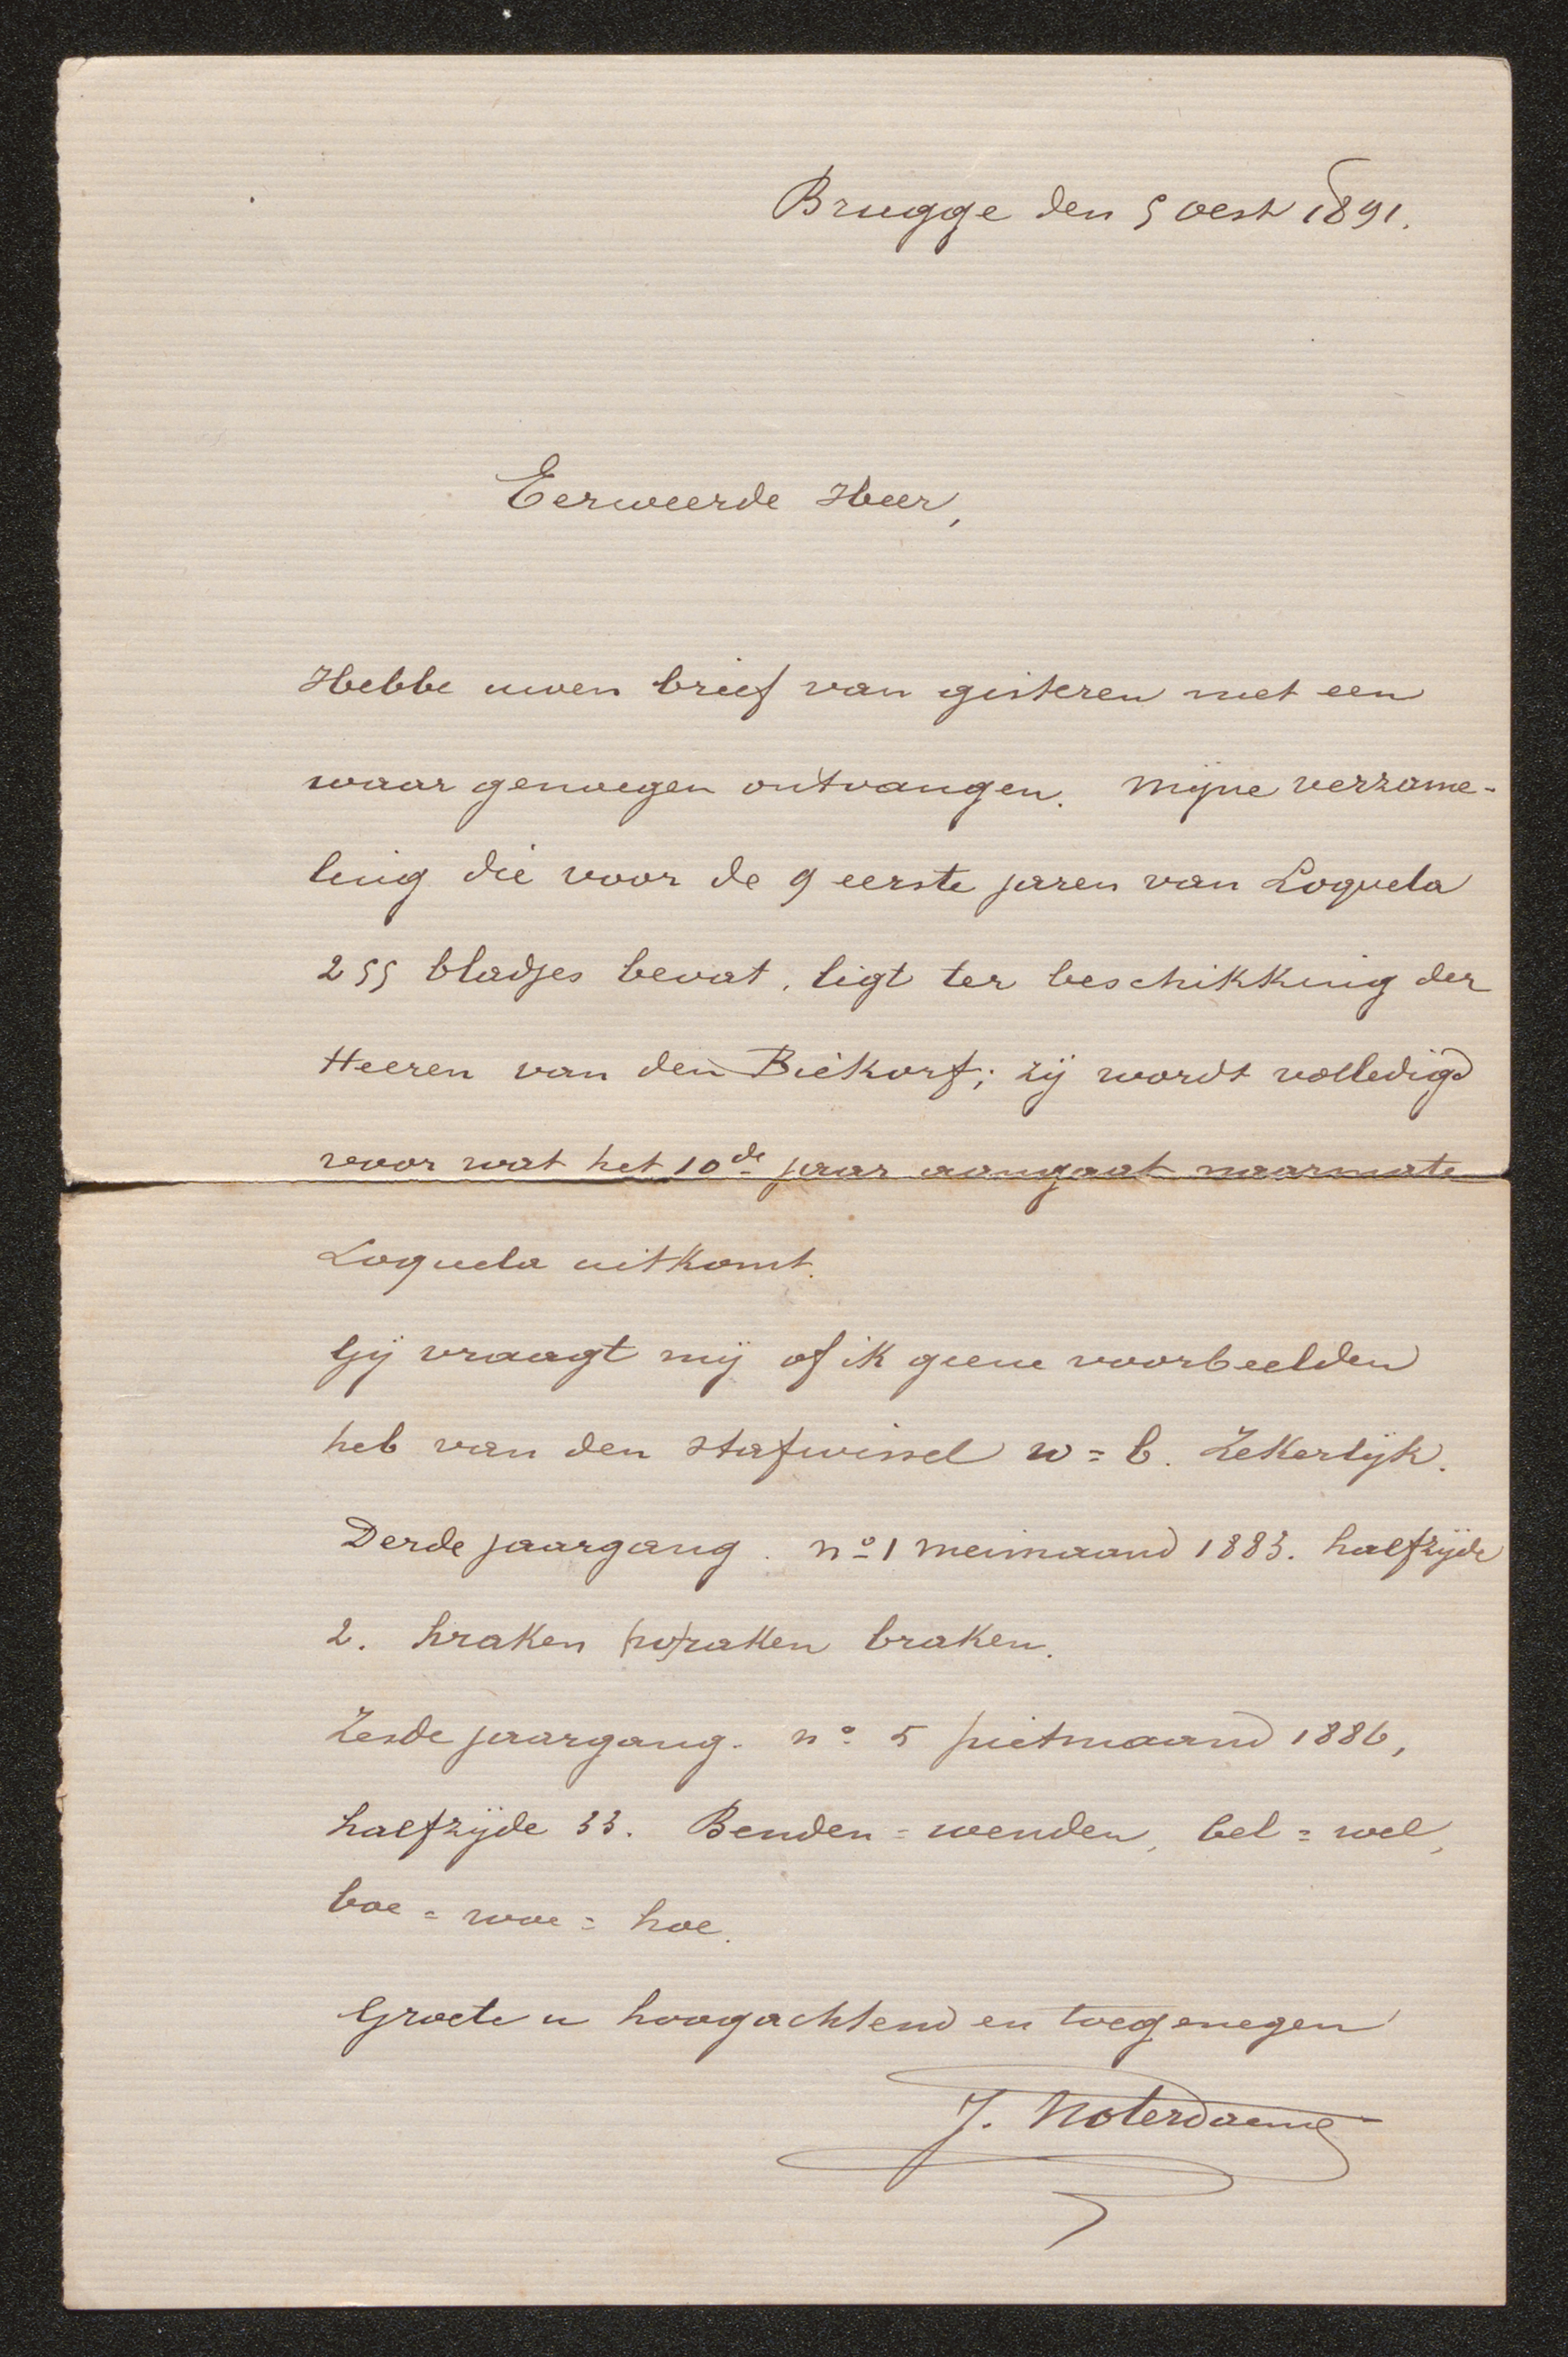 Brugge den 5 oest 1891.
Eerweerde Heer,
Hebbe uwen brief van gisteren met een
waar genoegen ontvangen. Mijne verzame-
ling die voor de 9 eerste jaren van Loquela
255 bladjes bevat, ligt ter beschikking der
Heeren van den Biekorf; zij wordt volledigd
voor wat het 10de jaar aangaat naarmate
Loquela uitkomt.
Gij vraagt mij of ik geene voorbeelden
heb van den stafwissel w = b. Zekerlijk.
Derde jaargang. no 1 meimaand 1883. halfzijde
2. hraken (w)raken braken.
Zesde jaargang. no 5 pietmaand 1886,
halfzijde 33. Benden = wenden, bel = wel,
boe = woe = hoe.
Groete u hoogachtend en toegenegen
J. Noterdaeme